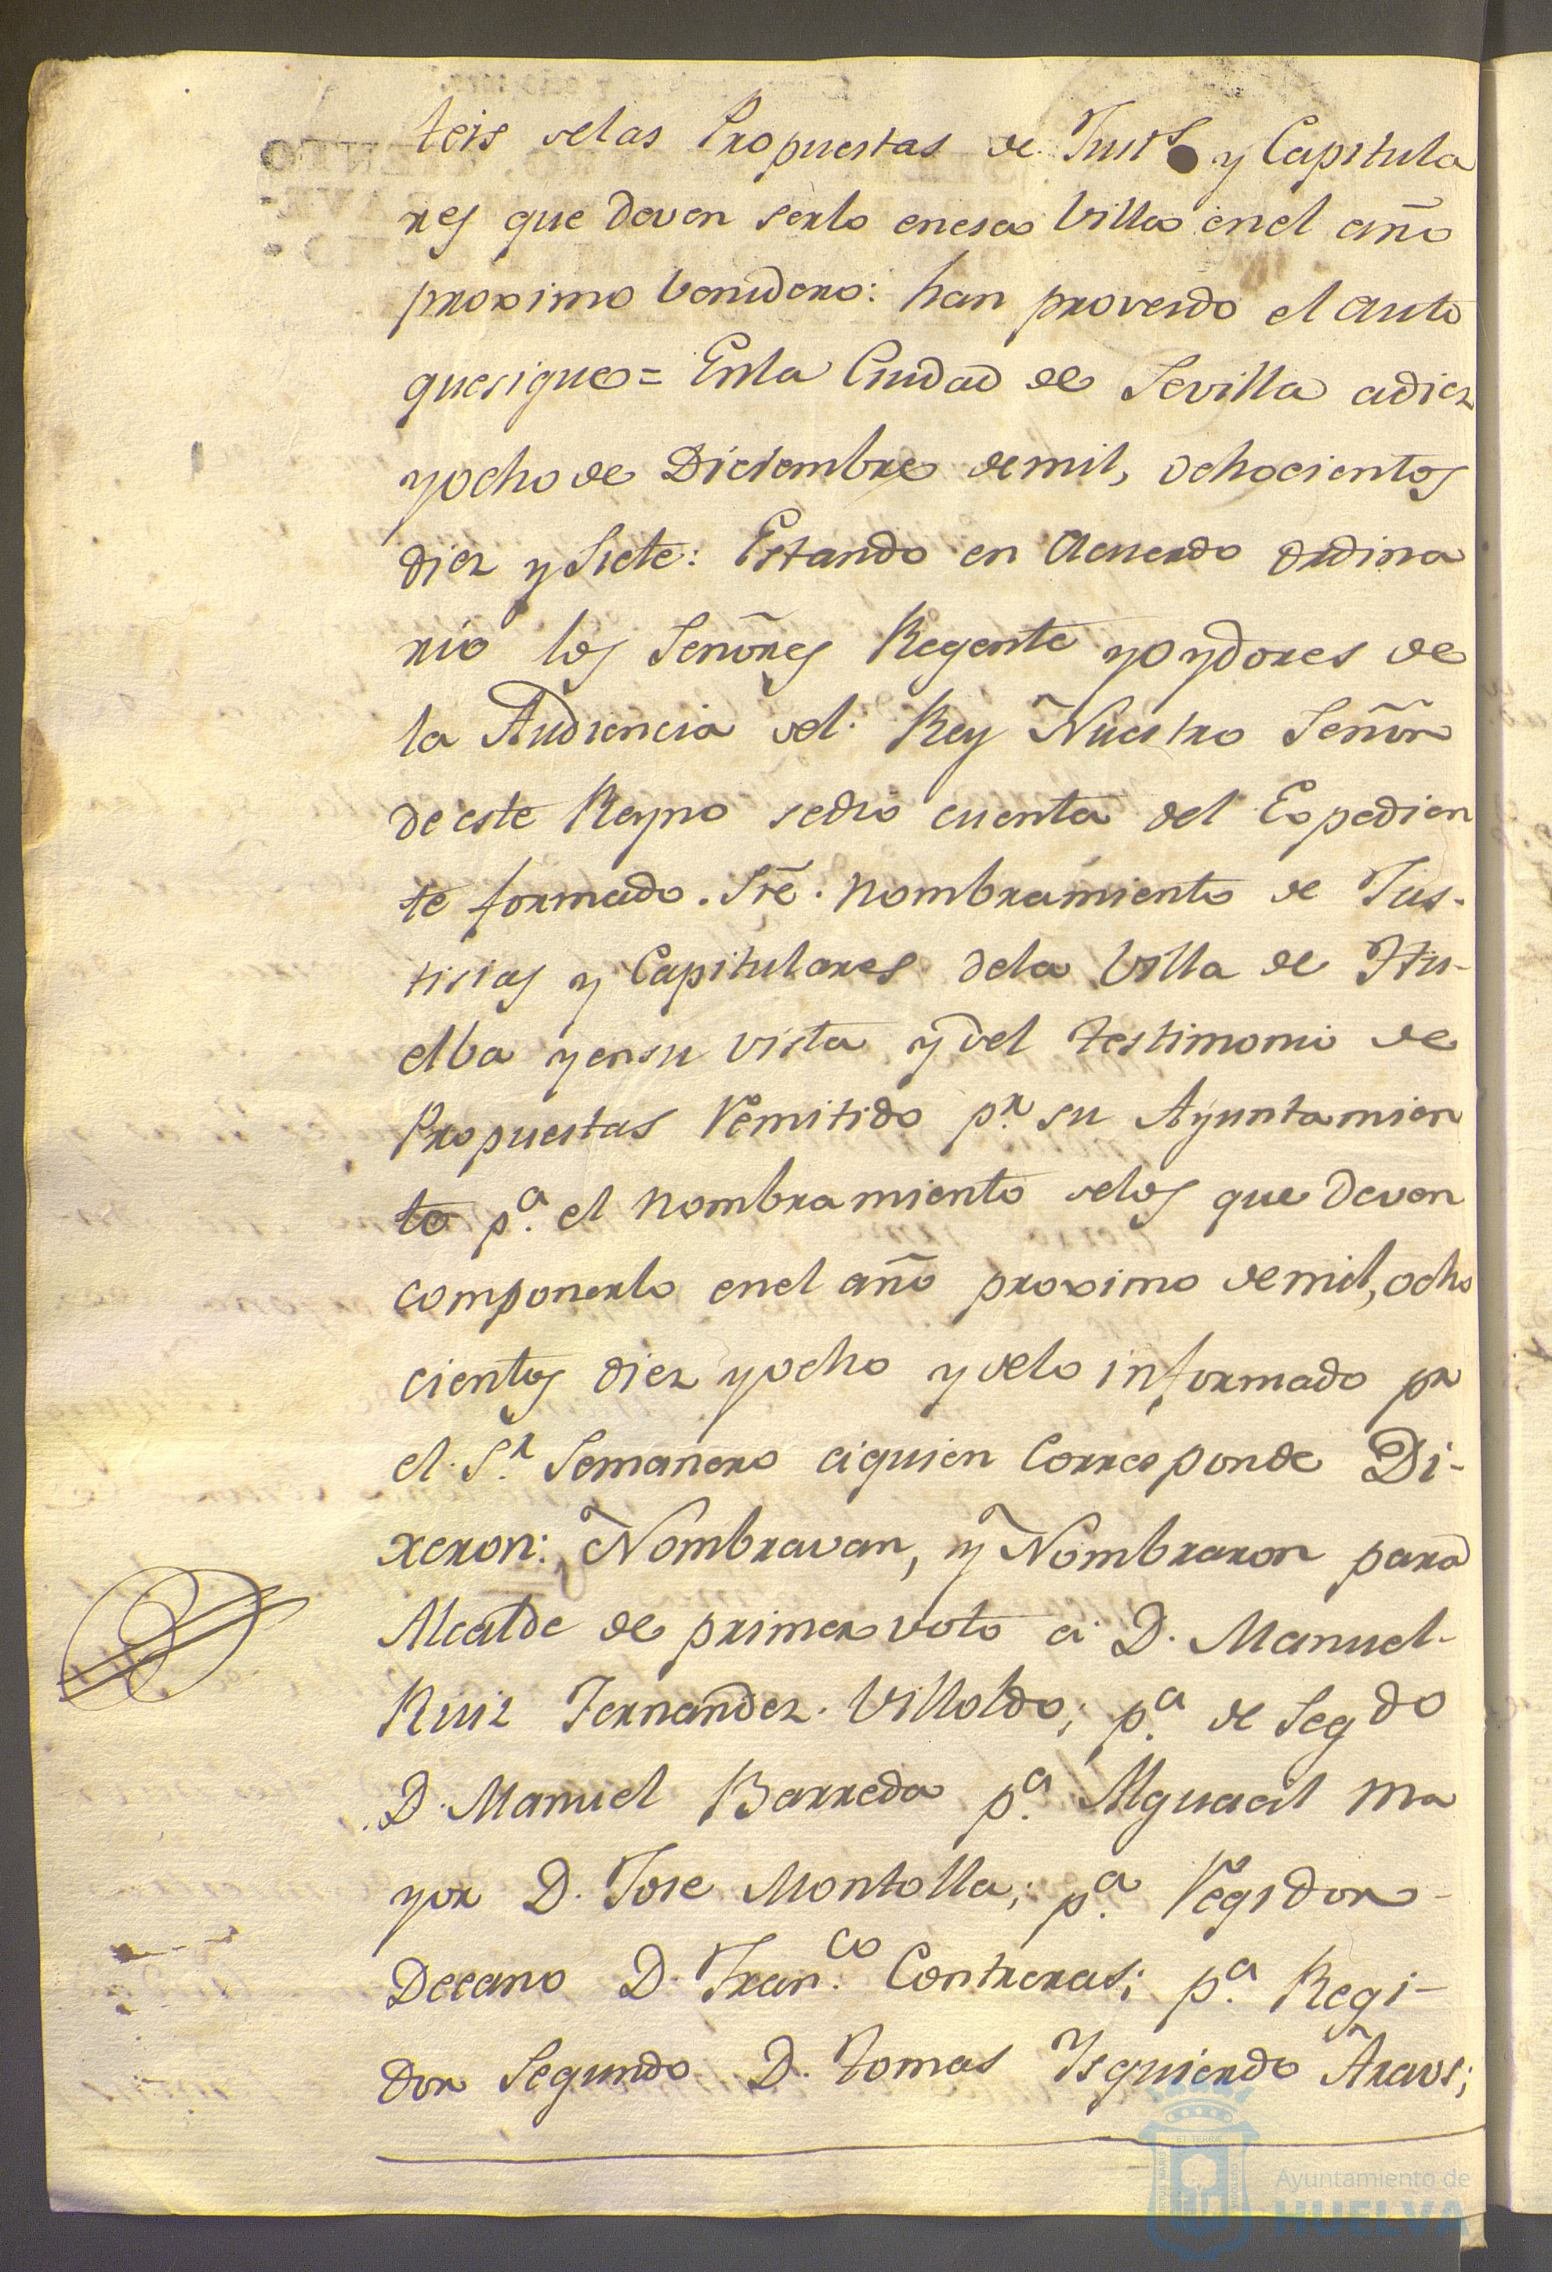 teis delas Propuestas de Justs y Capitula
res que deven serlo enesa Villa enel año
proximo benidero: han proveido el auto
quesigue= Enla Ciudad de Sevilla adiez
yocho de Diciembre demil, ochocientos
diez y Siete: Estando en Acuerdo ordina
rio los Señores Regente yoydores de
la Audiencia del Rey Nuestro Señor
deeste Reyno sedio cuenta del Expedien
te formado. Sre. nombramiento de Jus-
tisias y Capitulares dela Villa de Hu-
elba yensu vista y del testimonio de
Propuestas Remitido pr. su Ayuntamien
to pa. el nombramiento delos que deven
componerlo enel año proximo demil, ocho
cientos diez yocho y delo informado pr
el Sr. Semanero aquien Corresponde Di-
xeron: Nombravan, y Nombraron para
Alcalde de primer voto a D. Manuel
Ruiz Fernandez Villoldo; pa. de Segdo
D. Manuel Barreda pa. Alguacil ma
yor D. Jose Montolla; pa. Regidor
Decano D. Franco. Contreras; pa. Regi-
dor Segundo D. Tomas Ysquierdo Araus;
Ayuntamiento de
HUELVA